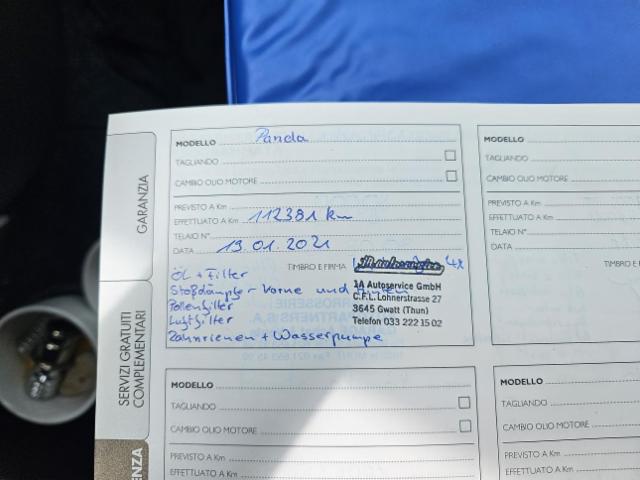 GARANZIA
SERVIZI GRATUITI
COMPLEMENTARI
ENZA
MODELLO Panda
TAGLIANDO
CAMBIO OLIO MOTORE
PREVISTO A Km
EFFETTUATO A Km 112381 km
TELAIO N°
DATA 19.01.2021
TIMBRO E FIRMA
Öl + Filter
Stoßdämpfer vorne und hinten
Pollenfilter
Luftfilter
Zahnriemen + Wasserpumpe
1A Autoservice GmbH
C.F.L. Lohnerstrasse 27
3645 Gwatt (Thun)
Telefon 033 222 15 02
MODELLO
TAGLIANDO
CAMBIO OLIO MOTORE
PREVISTO A Km
EFFETTUATO A Km
TELAIO N°
DATA
TIM
MODELLO
TAGLIANDO
CAMBIO OLIO MOTORE
PREVISTO A Km
EFFETTUATO A Km
MODELLO
TAGLIANDO
CAMBIO OLIO MOTOR
PREVISTO A Km
EFFETTUATO A Km